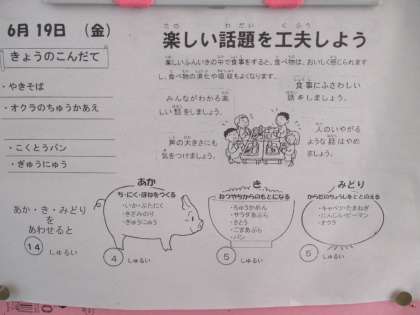 6月19日 (金)
きょうのこんだて
・やきそば
・オクラのちゅうかあえ
・こくとうパン
・ぎゅうにゅう
楽しい話題を工夫しよう
楽しいふんいきの中で食事をすると、食べ物は、おいしく感じられます
し、食べ物の消化や吸収もよくなります。
みんながわかる楽
しい話をしましょう。
食事にふさわしい
話をしましょう。
声の大きさにも
気をつけましょう。
人のいやがる
ような話はやめ
ましょう。
あか・き・みどり
をあわせると
14 しゅるい
あか
ち・にく・ほねをつくる
・いか・ぶたにく
・きざみのり
・ぎゅうにゅう
4 しゅるい
き
ねつやちからのもとになる
・ちゅうかめん
・サラダあぶら
・さとう
・ごまあぶら
・パン
5 しゅるい
みどり
からだのちょうしをととのえる
・キャベツ・たまねぎ
・にんじん・ピーマン
・オクラ
5 しゅるい